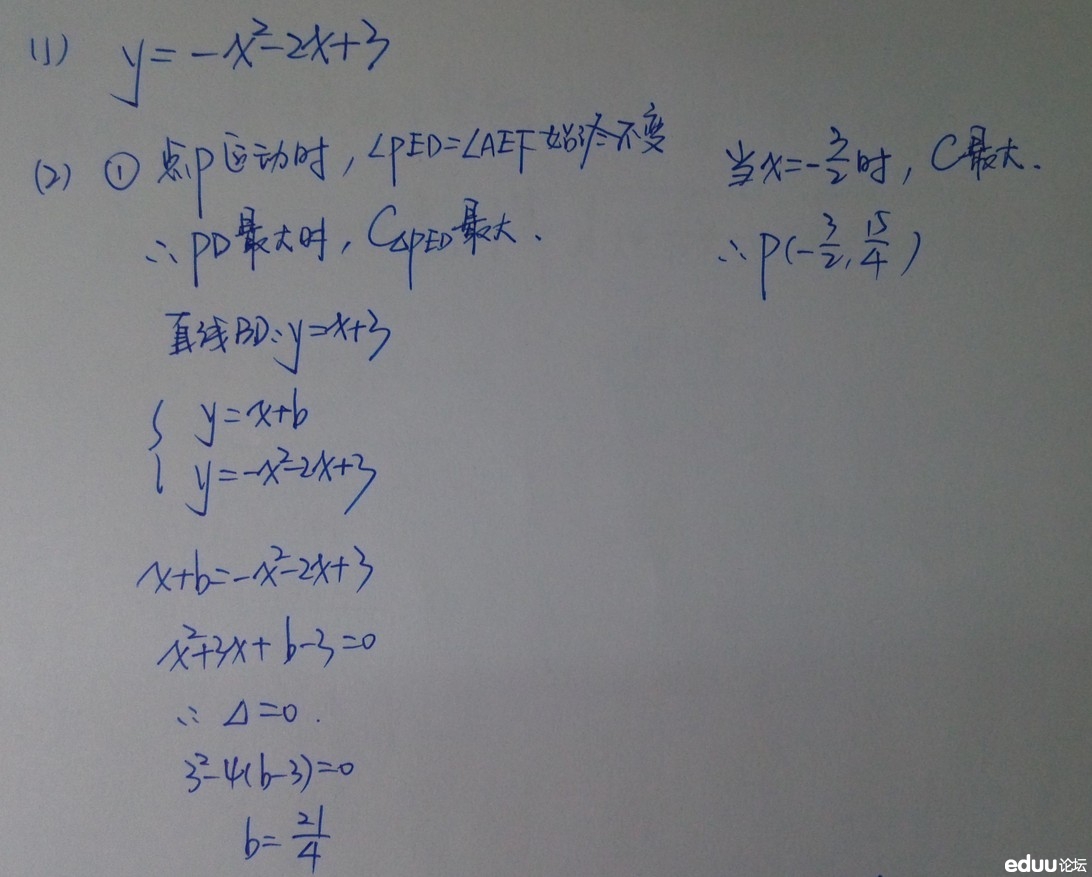 (1) y=-x²-2x+3
(2) ① 点P运动时，∠PED=∠AEF始终不变
∴PD最大时，C△PED最大.
直线BD:y=x+3
{ y=x+b
y=-x²-2x+3
x+b=-x²-2x+3
x²+3x+b-3=0
∴ Δ=0.
3²-4(b-3)=0
b=21/4
当x=-3/2时，C最大.
∴P(-3/2,15/4)
eduu论坛